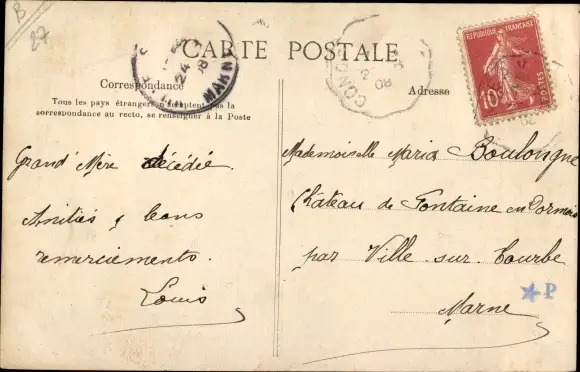 B
27
CARTE POSTALE
Correspondance
Adresse
Tous les pays étrangers n'acceptent pas la
correspondance au recto, se renseigner à la Poste
MARNE
24
08
COND
2
08
RÉPUBLIQUE FRANÇAISE
10c
POSTES
Grand' Mère décédée.
Amitiés & bons
remerciements.
Louis
Mademoiselle Maria Boulongne
Château de Fontaine en Dormois
par Ville sur Tourbe
Marne
★P